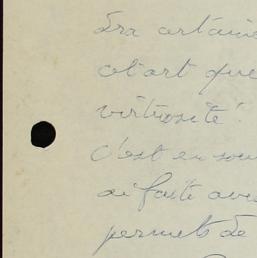 certaine
cet art que
virtuosité!
c'est en
si faite ave
permets de